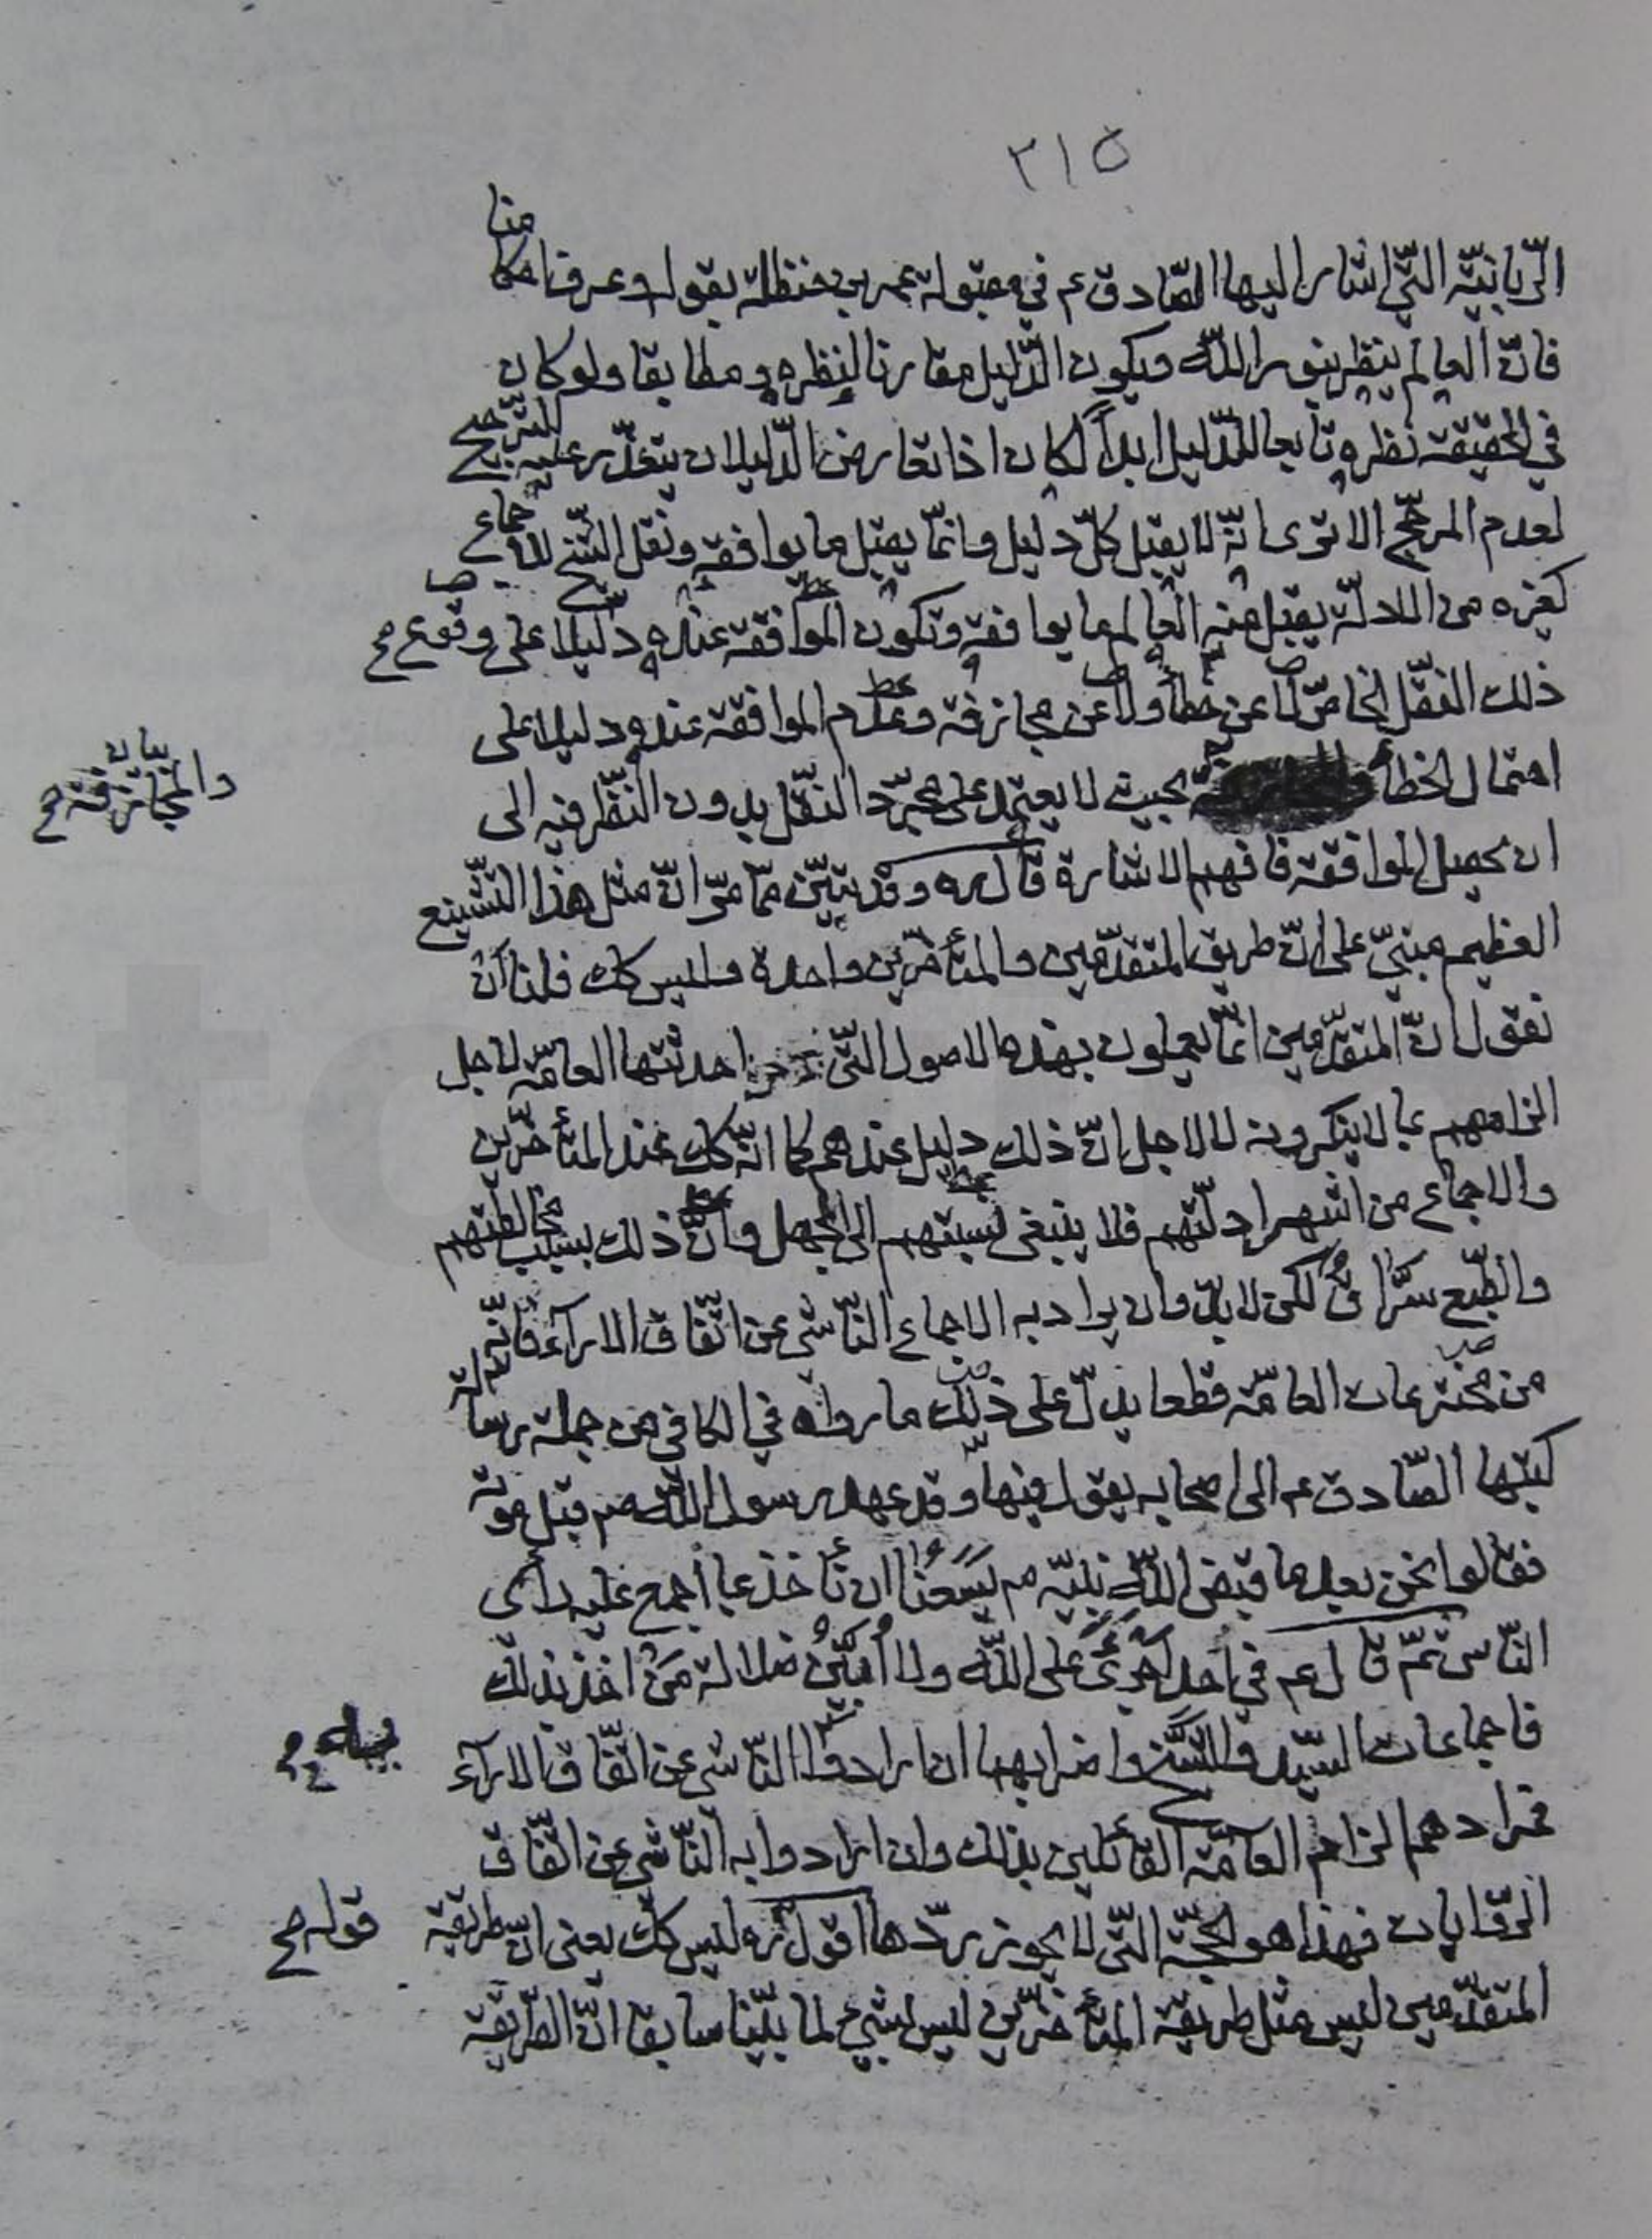 ٣١٥
الرّبانيّه التّي اشار اليها الصّادق ع في مقبولة عمر بن حنظلة بقوله وعرف احكامنا
فانّ العالم ينظر بنور اللّه ويكون الدّليل مقارنا لنظره ومطابقا ولو كان
في الحقيقة نظره تابعا للدّليل ابداً لكان اذا تعارض الدّليلان يتعذّر عليه التّرجيح
لعدم المرجّح الا ترى انّه لا يقبل كلّ دليل وانّما يقبل ما يوافقه ونقل الشّيخ للاجماع
كغيره من الادلّة يقبل منه العالم ما يوافقه وتكون الموافقة عنده دليلا على وقوع صح
ذلك النقل الخاصّ لا عن خطأ ولا عن مجازفة وعدم الموافقة عنده دليلا على
احتمال الخطأ بحيث لا يعتمد على مجرّد النّقل بدون النّظر فيه الى
والمجازفة صح
ان يحصل الموافقة فافهم الاشارة قال ره وقد تبيّن ممّا مرّ انّ مثل هذا التّشنيع
العظيم مبنيّ على انّ طريق المتقدّمين والمتأخّرين واحدة وليس كك فلنا ان
نقول انّ المتقدّمين انّما يعملون بهذه الاصول التّي احدثتها العامّة لاجل
الزامهم بما لا ينكرونه لا لاجل انّ ذلك دليل عندهم كما انّه كك عند المتأخّرين
والاجماع من اشهر ادلّتهم فلا ينبغي نسبتهم الى الجهل وانّ ذلك بسبب مخالطتهم
والطّبع سرّاق لكن لا بدّ وان يراد به الاجماع النّاشي عن اتّفاق الاراء فانّه
من مخترعات العامّة قطعا يدلّ على ذلك ما رواه في الكافي من جملة رسالة
كتبها الصّادق ع الى اصحابه يقول فيها وقد عهد رسول اللّه ص قبل موته
فقالوا نحن بعد ما قبض اللّه نبيّه ص يسعنا ان نأخذ بما اجمع عليه رأى
النّاس ثمّ قال ع في احد اجرئ على اللّه ولا ابين ضلالة من اخذ بذلك
فاجماعات السّيّد والشّيخ واضرابهما ان ارادوا النّاشي عن اتّفاق الاراء
به صح
فمرادهم الزام العامّة القائلين بذلك وان ارادوا به النّاشي عن اتّفاق
الرّوايات فهذا هو الحجّة التّي لا يجوز ردّها اقول ره ليس كك يعنى انّ طريقة
قوله صح
المتقدّمين ليس مثل طريقة المتأخّرين ليس بشيء لما بيّنا سابقا انّ الطّريقة